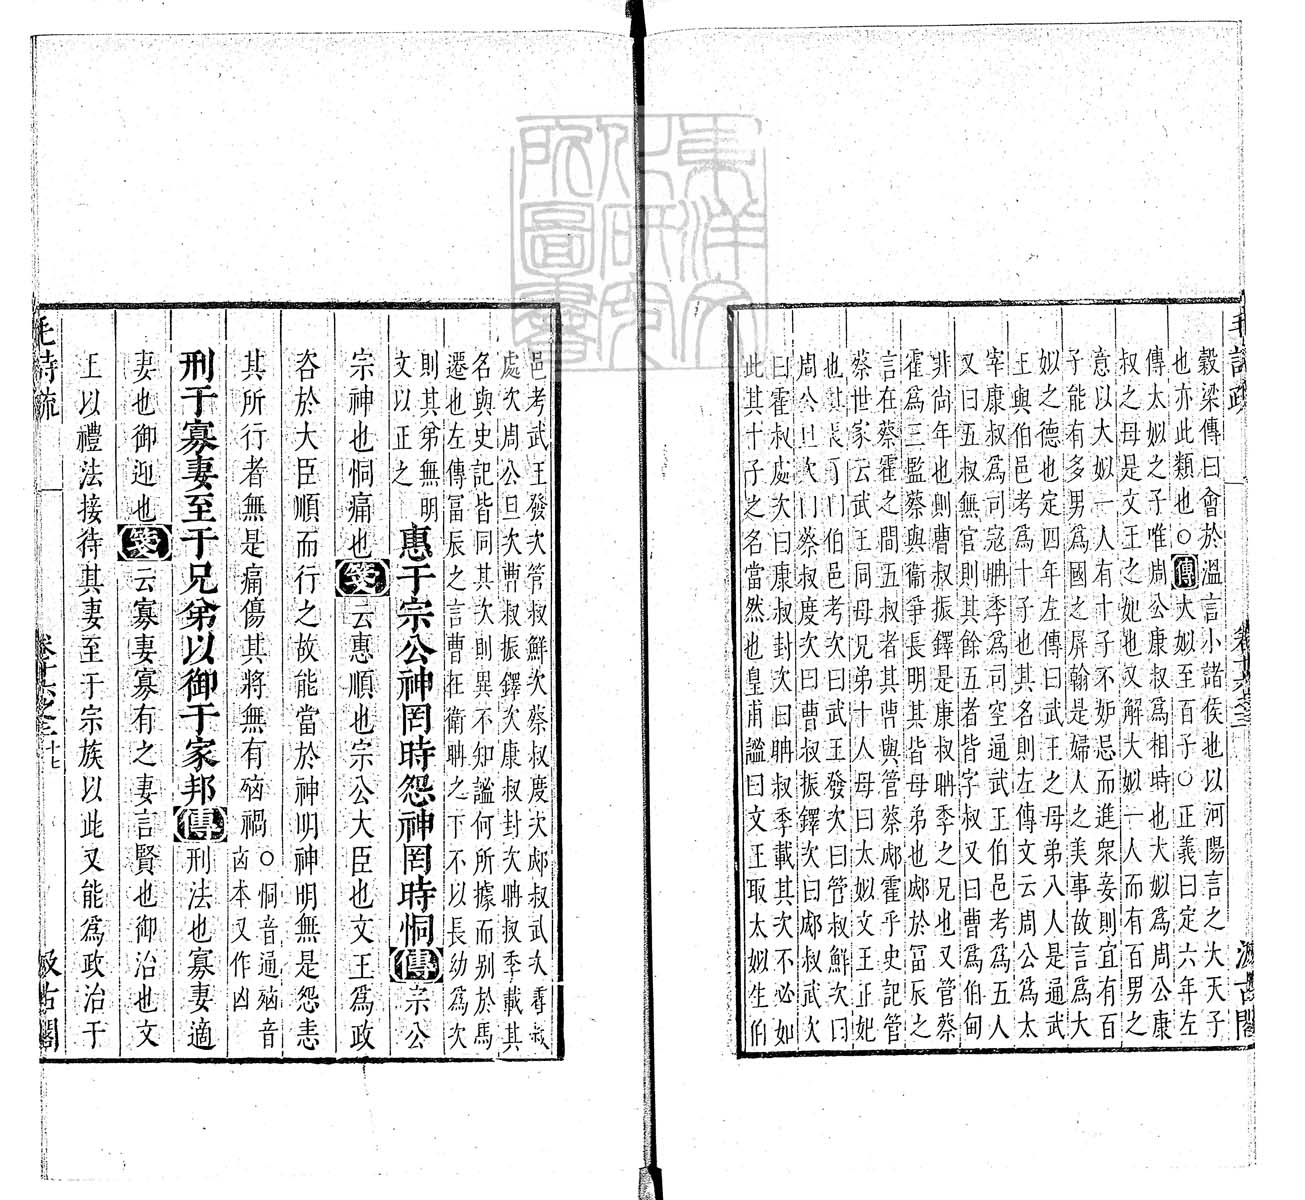 毛詩疏 卷十六之三 汲古閣
穀梁傳曰會於溫言小諸侯也以河陽言之大天子
也亦此類也○傳大姒至百子○正義曰定六年左
傳太姒之子唯周公康叔爲相時也大姒爲周公康
叔之母是文王之妃也又解大姒一人而有百男之
意以大姒一人有十子不妒忌而進衆妾則宜有百
子能有多男爲國之屏翰是婦人之美事故言爲大
姒之德也定四年左傳曰武王之母弟八人是通武
王與伯邑考爲十子也其名則左傳文云周公爲太
宰康叔爲司寇聃季爲司空通武王伯邑考爲五人
又曰五叔無官則其餘五者皆字叔又曰曹爲伯甸
非尚年也則曹叔振鐸是康叔聃季之兄也又管蔡
霍爲三監蔡與衞爭長明其皆母弟也郕於畐辰之
言在蔡霍之間五叔者其曹與管蔡郕霍乎史記管
蔡世家云武王同母兄弟十人母曰太姒文王正妃
也其長子曰伯邑考次曰武王發次曰管叔鮮次曰
周公旦次曰蔡叔度次曰曹叔振鐸次曰郕叔武次
曰霍叔處次曰康叔封次曰聃叔季載其次不必如
此其十子之名當然也皇甫謐曰文王取太姒生伯
邑考武王發次管叔鮮次蔡叔度次郕叔武次霍叔
處次周公旦次曹叔振鐸次康叔封次聃叔季載其
名與史記皆同其次則異不知謐何所據而別於馬
遷也左傳畐辰之言曹在衞聃之下不以長幼爲次
則其弟無明
文以正之
惠于宗公神罔時怨神罔時恫傳宗公
宗神也恫痛也箋云惠順也宗公大臣也文王爲政
咨於大臣順而行之故能當於神明神明無是怨恚
其所行者無是痛傷其將無有殈禍○恫音通殈音
凶本又作凶
刑于寡妻至于兄弟以御于家邦傳刑法也寡妻適
妻也御迎也箋云寡妻寡有之妻言賢也御治也文
王以禮法接待其妻至于宗族以此又能爲政治于
毛詩疏 卷十六之三 十七 汲古閣
東洋文化研究所圖書